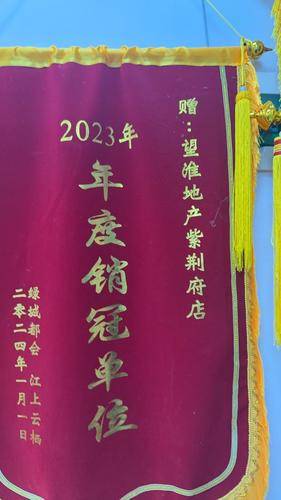 赠：望淮地产紫荆府店
2023年
年度销冠单位
绿城都会 江上云栖
二零二四年一月一日